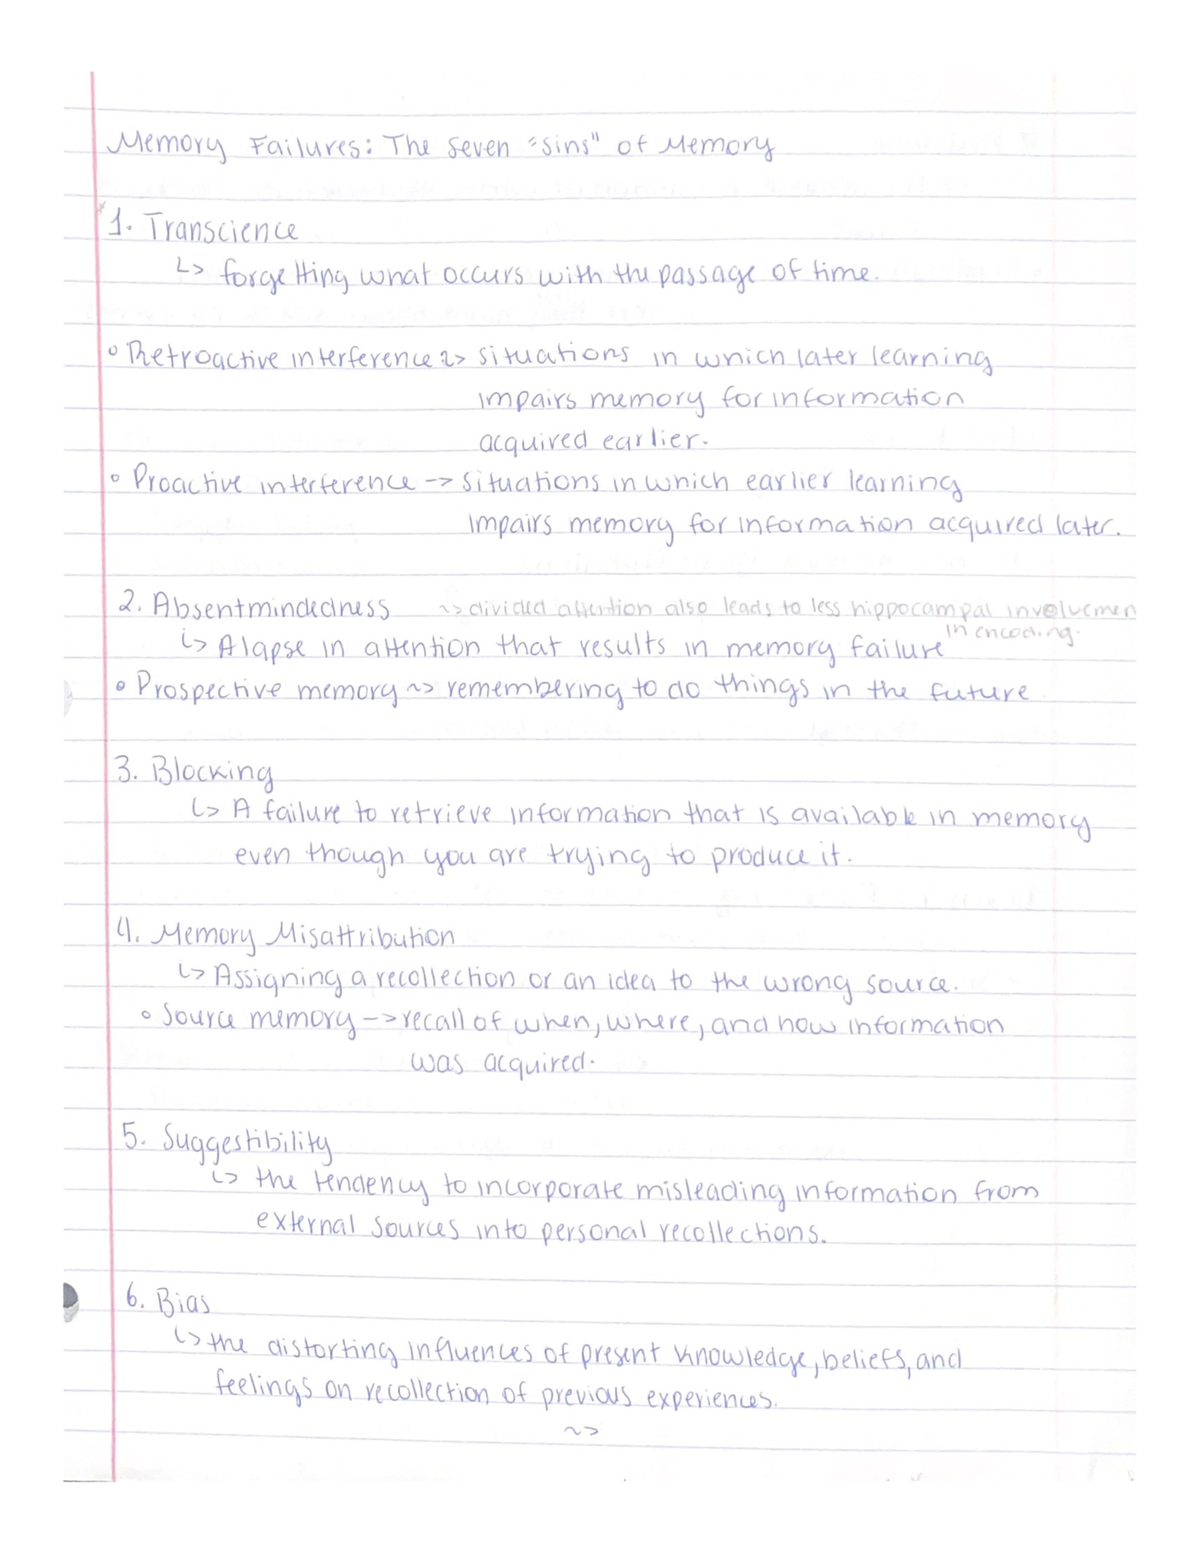 Memory Failures: The Seven "sins" of Memory
*1. Transcience
↳ forgetting what occurs with the passage of time.
◦ Retroactive interference ~> situations in which later learning
impairs memory for information
acquired earlier.
◦ Proactive interference -> situations in which earlier learning
impairs memory for information acquired later.
2. Absentmindedness ~> divided attention also leads to less hippocampal involvemen
in encoding.
↳ A lapse in attention that results in memory failure
◦ Prospective memory ~> remembering to do things in the future
3. Blocking
↳ A failure to retrieve information that is available in memory
even though you are trying to produce it.
4. Memory Misattribution
↳ Assigning a recollection or an idea to the wrong source.
◦ Source memory -> recall of when, where, and how information
was acquired.
5. Suggestibility
↳ the tendency to incorporate misleading information from
external sources into personal recollections.
6. Bias
↳ the distorting influences of present knowledge, beliefs, and
feelings on recollection of previous experiences.
~>